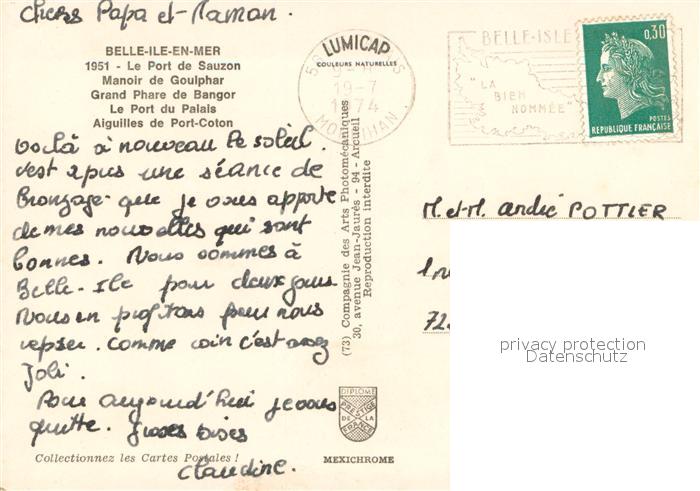 Chers Papa et Maman
BELLE-ILE-EN-MER
1951 - Le Port de Sauzon
Manoir de Goulphar
Grand Phare de Bangor
Le Port du Palais
Aiguilles de Port-Coton
LUMICAP
COULEURS NATURELLES
19-7
1974
MORBIHAN
BELLE-ISLE
"LA
BIEN
NOMMÉE"
0,30
POSTES
REPUBLIQUE FRANÇAISE
Voilà à nouveau le soleil.
c'est après une séance de
bronzage que je vous apporte
de mes nouvelles qui sont
bonnes. Nous sommes à
Belle-Ile pour deux jours
Nous en profitons pour nous
reposer. Comme coin c'est assez
Joli.
Pour aujourd'hui je vous
quitte. Grosses bises
Claudine.
(73) Compagnie des Arts Photomécaniques
30, avenue Jean-Jaurès - 94 - Arcueil
Reproduction interdite
M. et M. André POTTIER
72
privacy protection
Datenschutz
DIPLOME
PRESTIGE
DE LA
FRANCE
Collectionnez les Cartes Postales !
MEXICHROME